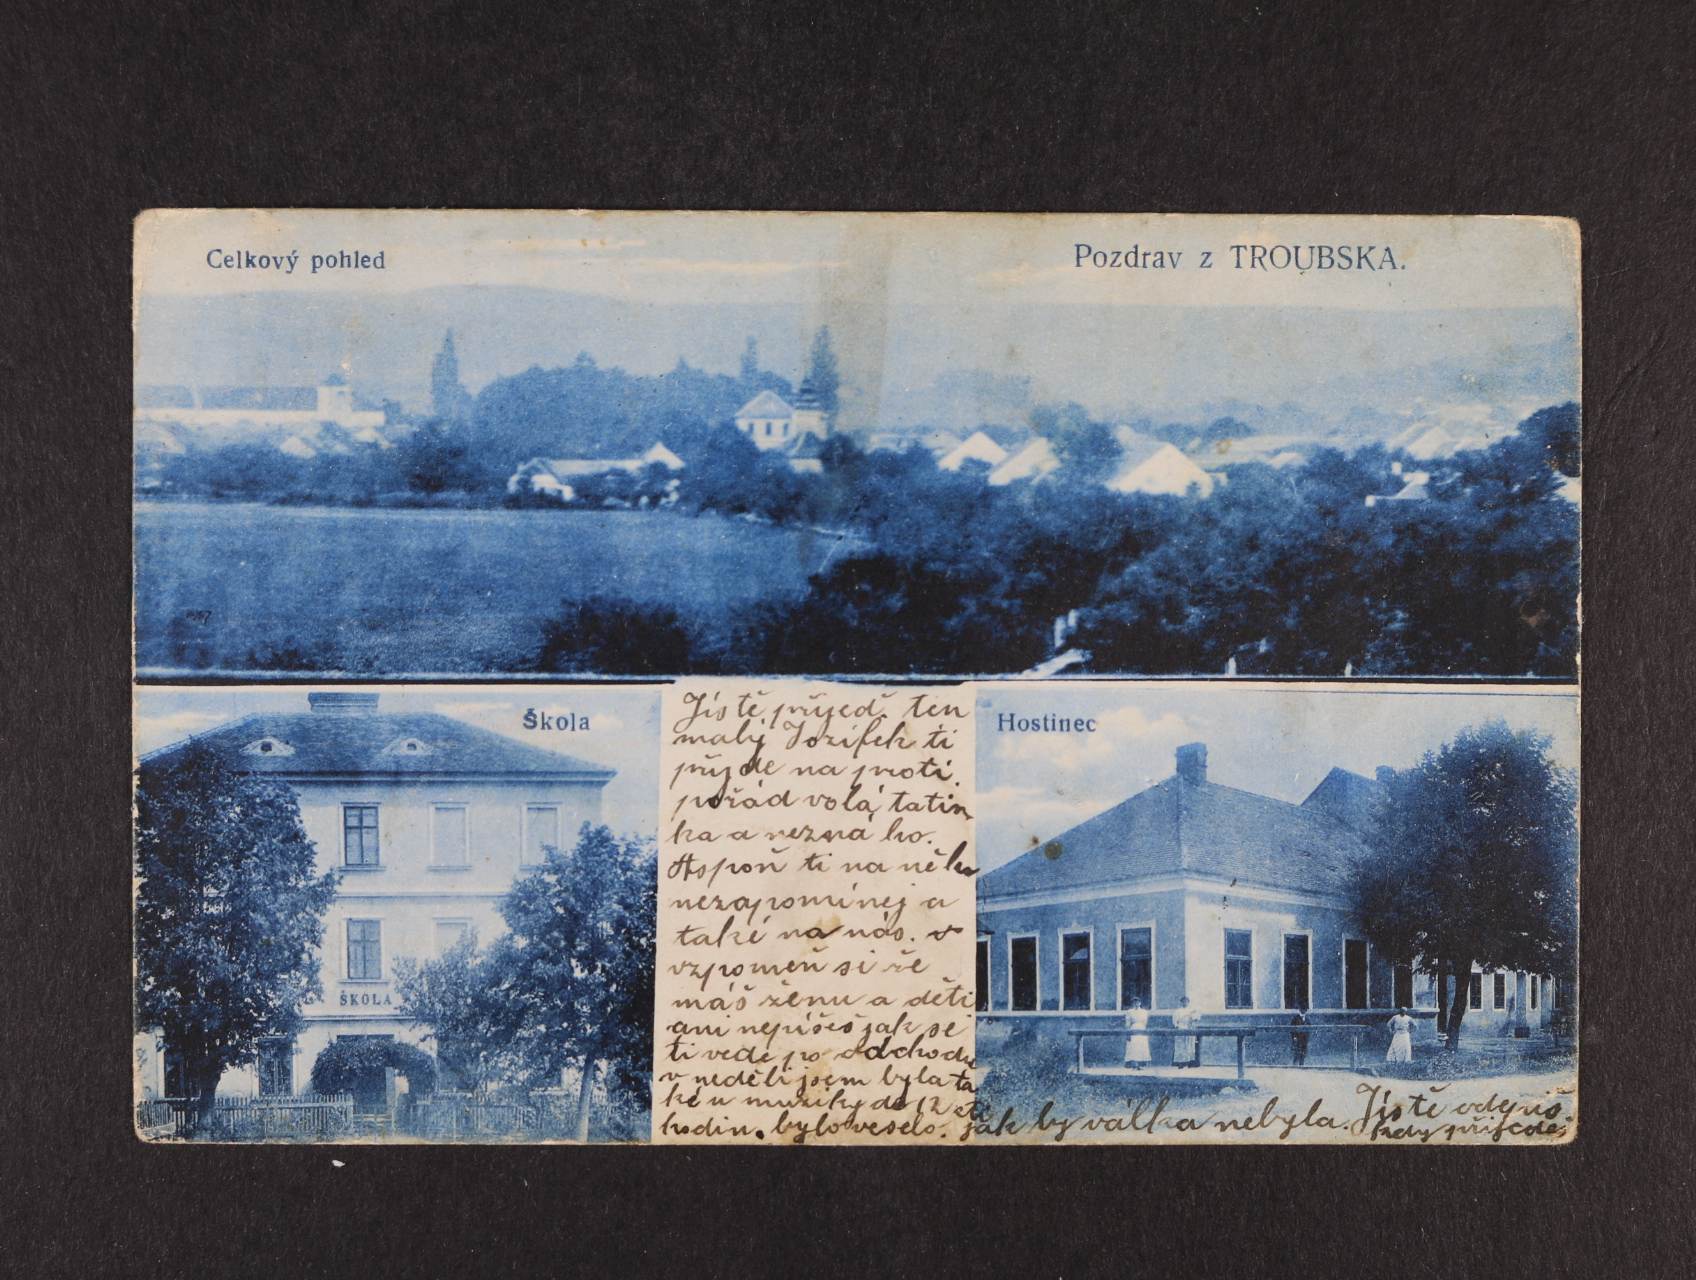 Celkový pohled
Pozdrav z TROUBSKA.
Škola
ŠKOLA
Hostinec
Jistě přijeď ten
malý Jozífek ti
přijde na proti.
pořád volá, tatín
ka a nezná ho.
Aspoň ti na něho
nezapomínej a
také na nás.
vzpomeň si že
máš ženu a děti
ani nepíšeš jak se
ti vede po odchodu
v neděli jsem byla ta
ké u muziky do 12
hodin. bylo veselo. jak by válka nebyla. Jistě odepiš.
kdy přijedeš